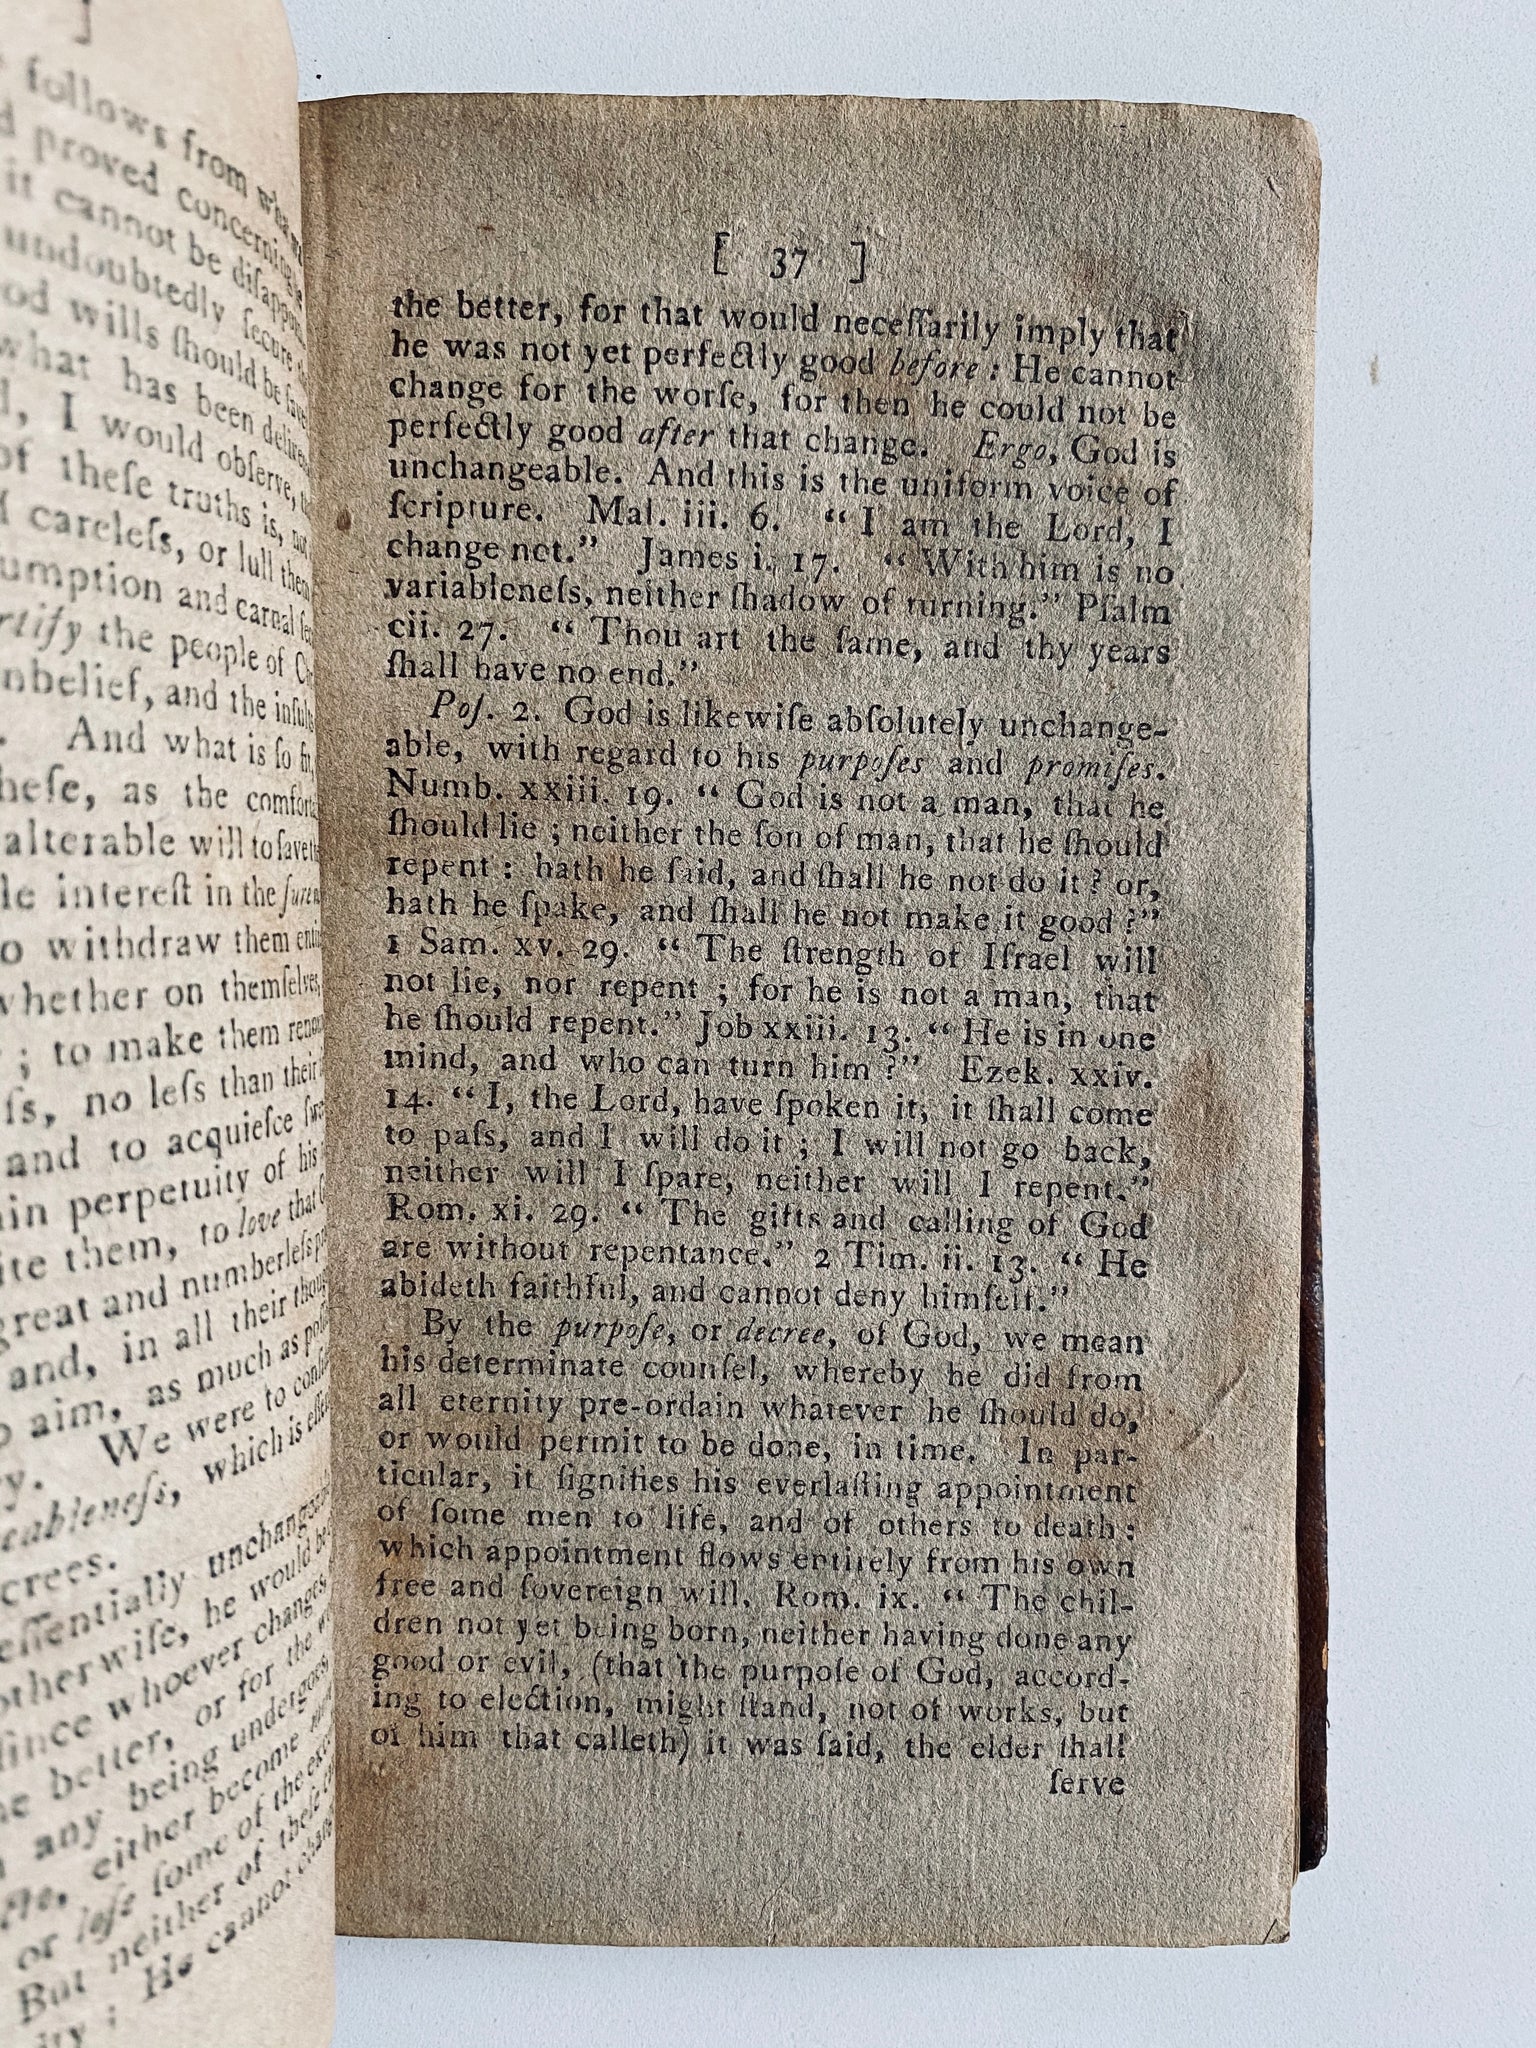 ]
follows from what
proved concerning
it cannot be disappoin
undoubtedly ſecure
wills ſhould be ſave
what has been delivere
I would obſerve,
of theſe truths is, not
careleſs, or lull them
and carnal ſec
the people of
and the
And what is ſo fit,
as the comforta
will to ſave
intereſt in the ſure
withdraw them
whether on themſelves,
; to make them
no leſs than their
and to acquieſce
perpetuity of his
them, to love that
great and numberleſs
and, in all their
aim, as much as
We were to
which is
unchangea
otherwiſe, he would be
ſince whoever changes,
better, or for the
any being undergoes,
either become
or loſe ſome of the
But neither of theſe
: He cannot change
[ 37 ]
the better, for that would neceſſarily imply that
he was not yet perfectly good before : He cannot
change for the worſe, for then he could not be
perfectly good after that change. Ergo, God is
unchangeable. And this is the uniform voice of
ſcripture. Mal. iii. 6. “ I am the Lord, I
change not.” James i. 17. “ With him is no
variableneſs, neither ſhadow of turning.” Pſalm
cii. 27. “ Thou art the ſame, and thy years
ſhall have no end.”
Poſ. 2. God is likewiſe abſolutely unchange-
able, with regard to his purpoſes and promiſes.
Numb. xxiii. 19. “ God is not a man, that he
ſhould lie ; neither the ſon of man, that he ſhould
repent : hath he ſaid, and ſhall he not do it ? or,
hath he ſpake, and ſhall he not make it good ?”
1 Sam. xv. 29. “ The ſtrength of Iſrael will
not lie, nor repent ; for he is not a man, that
he ſhould repent.” Job xxiii. 13. “ He is in one
mind, and who can turn him ?” Ezek. xxiv.
14. “ I, the Lord, have ſpoken it, it ſhall come
to paſs, and I will do it ; I will not go back,
neither will I ſpare, neither will I repent.”
Rom. xi. 29. “ The gifts and calling of God
are without repentance.” 2 Tim. ii. 13. “ He
abideth faithful, and cannot deny himſelf.”
By the purpoſe, or decree, of God, we mean
his determinate counſel, whereby he did from
all eternity pre-ordain whatever he ſhould do,
or would permit to be done, in time. In par-
ticular, it ſignifies his everlaſting appointment
of ſome men to life, and of others to death :
which appointment flows entirely from his own
free and ſovereign will. Rom. ix. “ The chil-
dren not yet being born, neither having done any
good or evil, (that the purpoſe of God, accord-
ing to election, might ſtand, not of works, but
of him that calleth) it was ſaid, the elder ſhall
ſerve